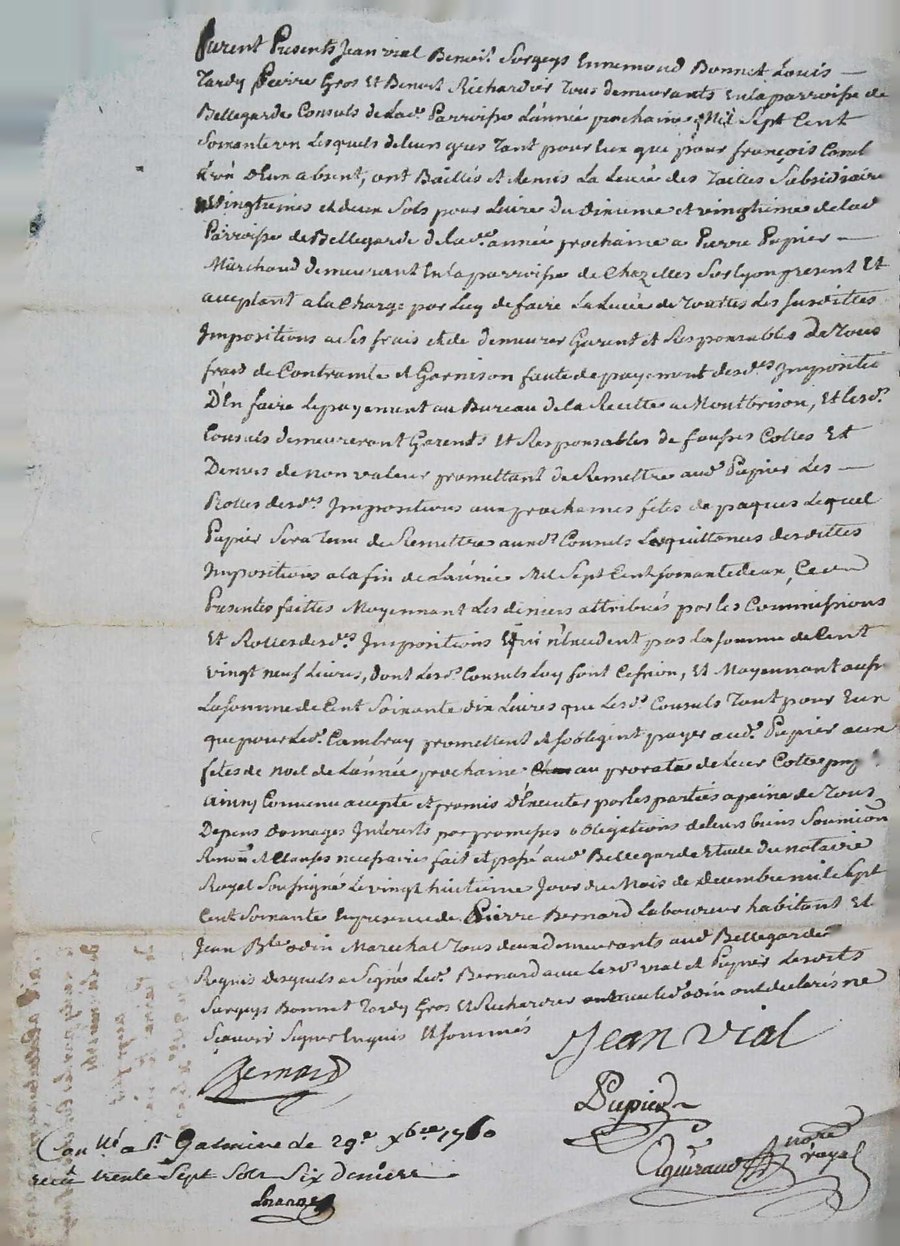 furent Presents Jean vial Benoit Sorgeys Ennemond Bonnet Louis
Tardy Pierre Gros Et Benoit Richardier Tous demeurants En la parroisse de
Bellegarde Consuls de Lad. Parroisse L'année prochaine Mil Sept Cent
Soixante un Lesquels de leur gres Tant pour Eux que pour françois
d'eux absent, ont Baillés et Remis La Levée des Tailles Subsidiaire
Vingtiemes et deux Sols pour Livre du dixieme et vingtieme de lad
Parroisse de Bellegarde de la de. année prochaine a Pierre Pupier
Marchand demeurant En la parroisse de Chazelles Sur Lyon present Et
acceptant a la Charge par Luy de faire La Levée de Touttes Les Susdittes
Impositions a Ses frais et de demeurer Garent et Responsables De Tous
frais de Contrainte et Garnison faute de payement desd.es Impositio
D'En faire Le payement au Bureau de la Recette a Montbrison, Et lesd.
Consuls demeureront Garents Et Responsables de fausses Cottes Et
Deniers de non valeur promettant de Remettre aud. Pupier Les
Rolles desd.es Impositions aux prochaines fetes de paques Lequel
Pupier Sera Tenu de Remettre auxd. Consuls Les quittances desdittes
Impositions a la fin de L'année Mil Sept Cent soixante deux,
Presentes faittes Moyennant Les deniers attribués par les Commissions
Et Rolles desd.es Impositions Et qui n'Excedent pas la somme de Cent
vingt neuf Livres, dont Lesd. Consuls Luy font Cession, Et Moyennant aussy
La somme de Cent Soixante dix Livres que Lesd. Consuls Tant pour Eux
que pour Led. Cambray promettent et s'obligent payer aud. Pupier aux
fetes de noel de L'année prochaine au prorata de Leur Cottes
ainsy Convenu accepté et promis d'Executer par les parties a peine de Tous
Depens Domages Interets par promesses obligations de leurs biens Soumission
Renon. et Clauses necessaires fait et passé aud. Bellegarde Etude du notaire
Royal Soussigné Le vingt huitieme Jour du Mois de Decembre mil Sept
Cent Soixante En presence de Pierre Bernard Laboureur habitant Et
Jean Bte. odin Marechal Tous deux demeurants aud. Bellegarde
Requis desquels a Signé Led. Bernard avec Lesd. vial et Pupier Lesdits
Sorgeys Bonnet Tardy Gros Et Richardier Led. odin ont declarés ne
Scavoir Signer Enquis Et sommés
Jean vial
Bernard
Pupier
Aguiraud nore royal
Con llé a St. Galmier Le 29e. Xbre 1760
reçu trente Sept Sols Six deniers